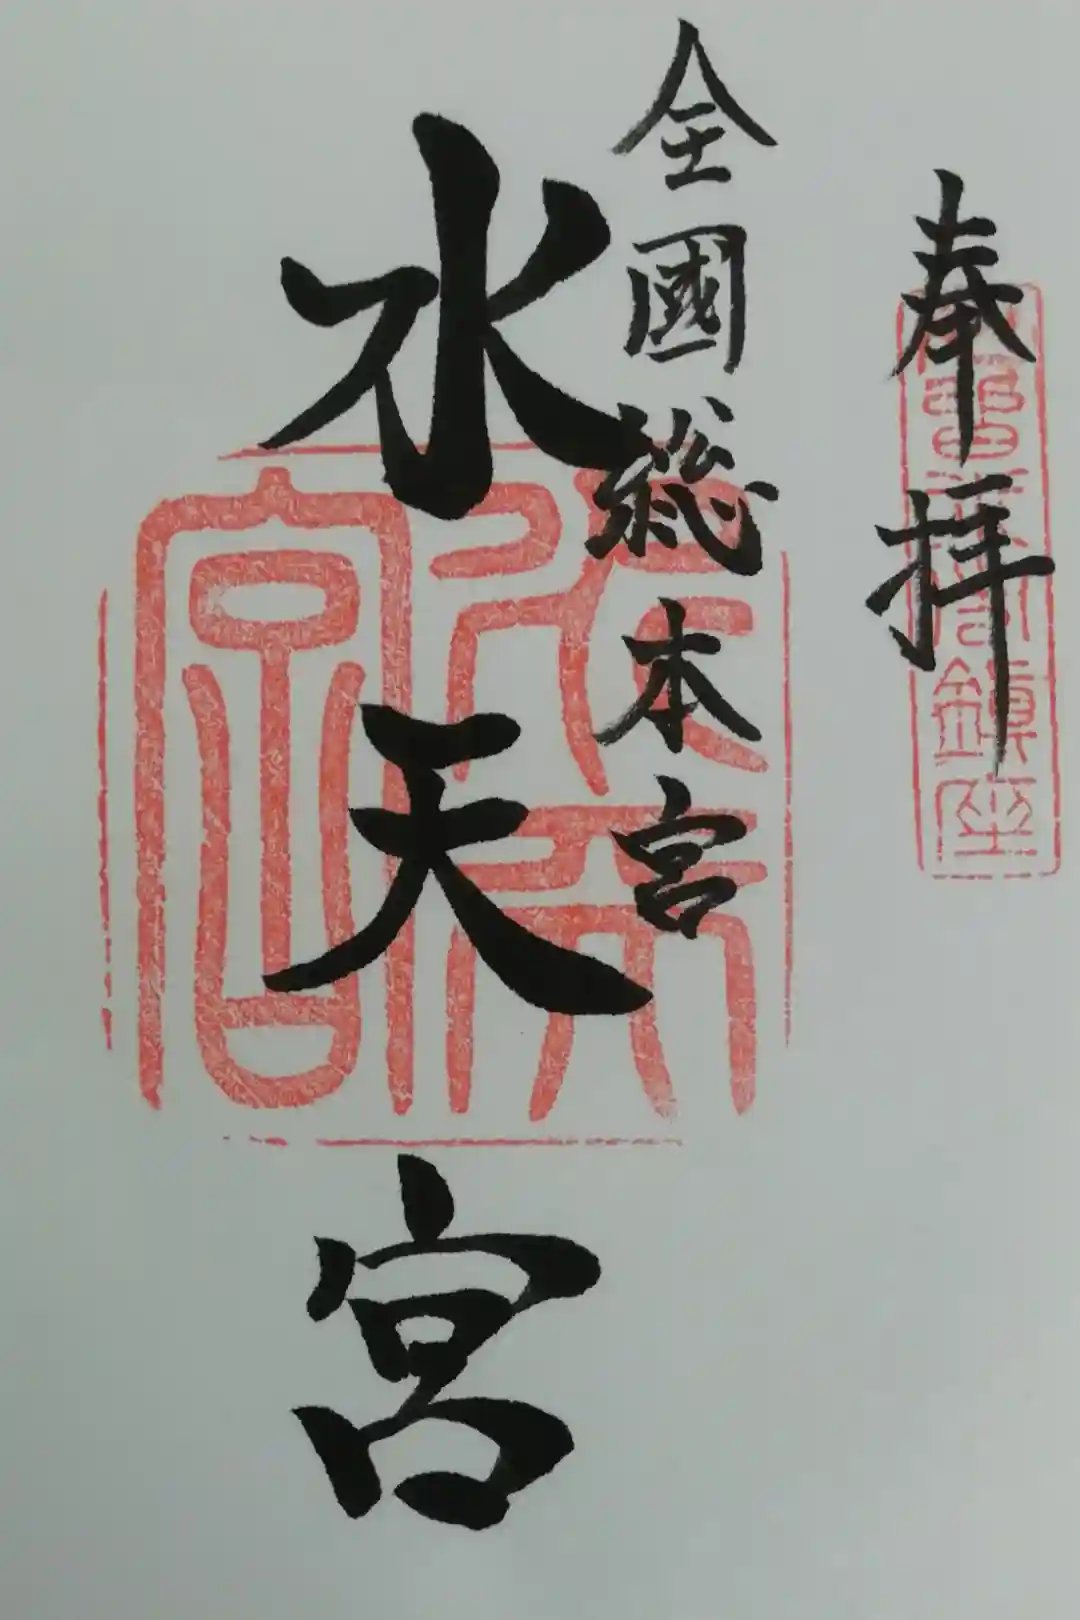 奉拝
全國総本宮
水天宮
水天宮